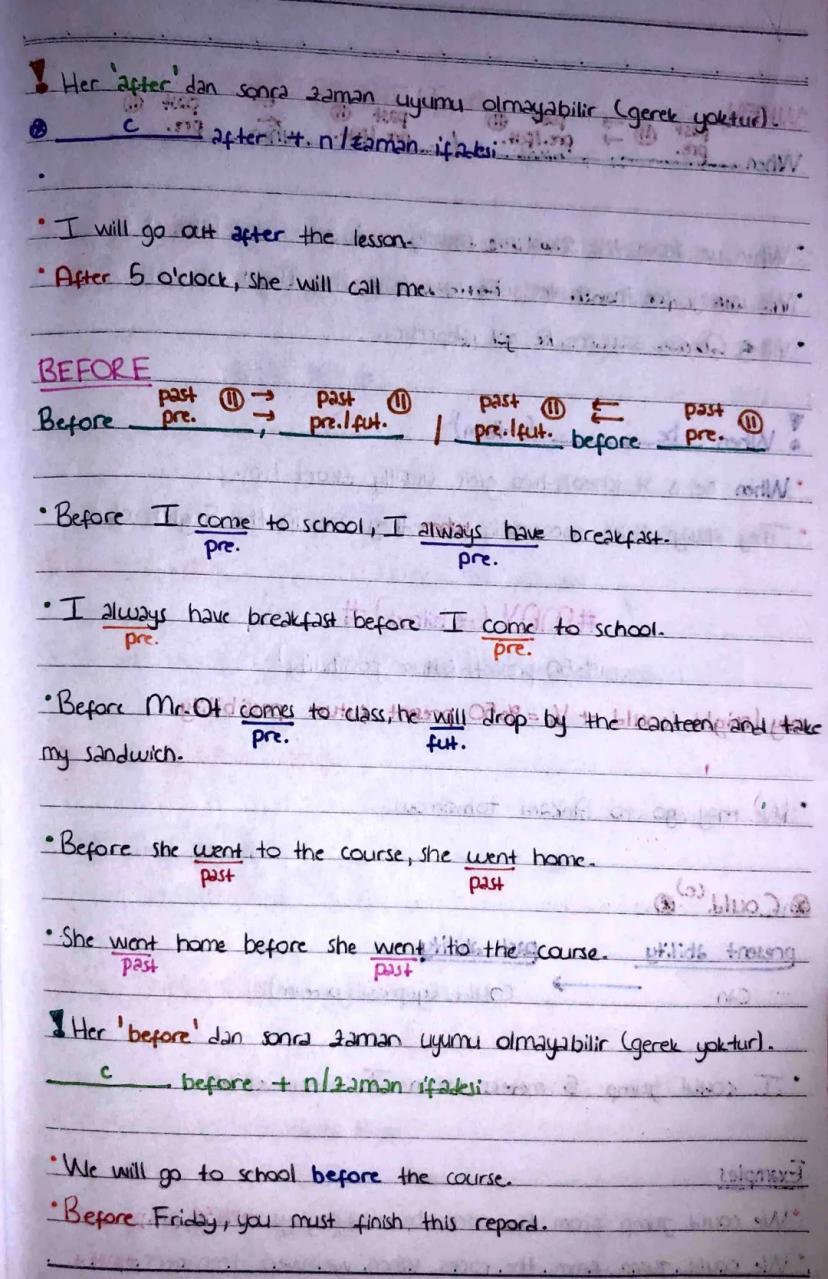 ! Her 'after' dan sonra zaman uyumu olmayabilir (gerek yoktur).
c after + n/zaman ifadesi
• I will go out after the lesson.
• After 5 o'clock, she will call me.
BEFORE
past ⑪ → past ⑪ past ⑪ ← past ⑪
Before pre. → , pre./fut. | pre./fut. ← before pre.
• Before I come to school, I always have breakfast.
pre. pre.
• I always have breakfast before I come to school.
pre. pre.
• Before Mr. Ot comes to class, he will drop by the canteen and take
pre. fut.
my sandwich.
• Before she went to the course, she went home.
past past
• She went home before she went to the course.
past past
! Her 'before' dan sonra zaman uyumu olmayabilir (gerek yoktur).
c before + n/zaman ifadesi
• We will go to school before the course.
• Before Friday, you must finish this repord.